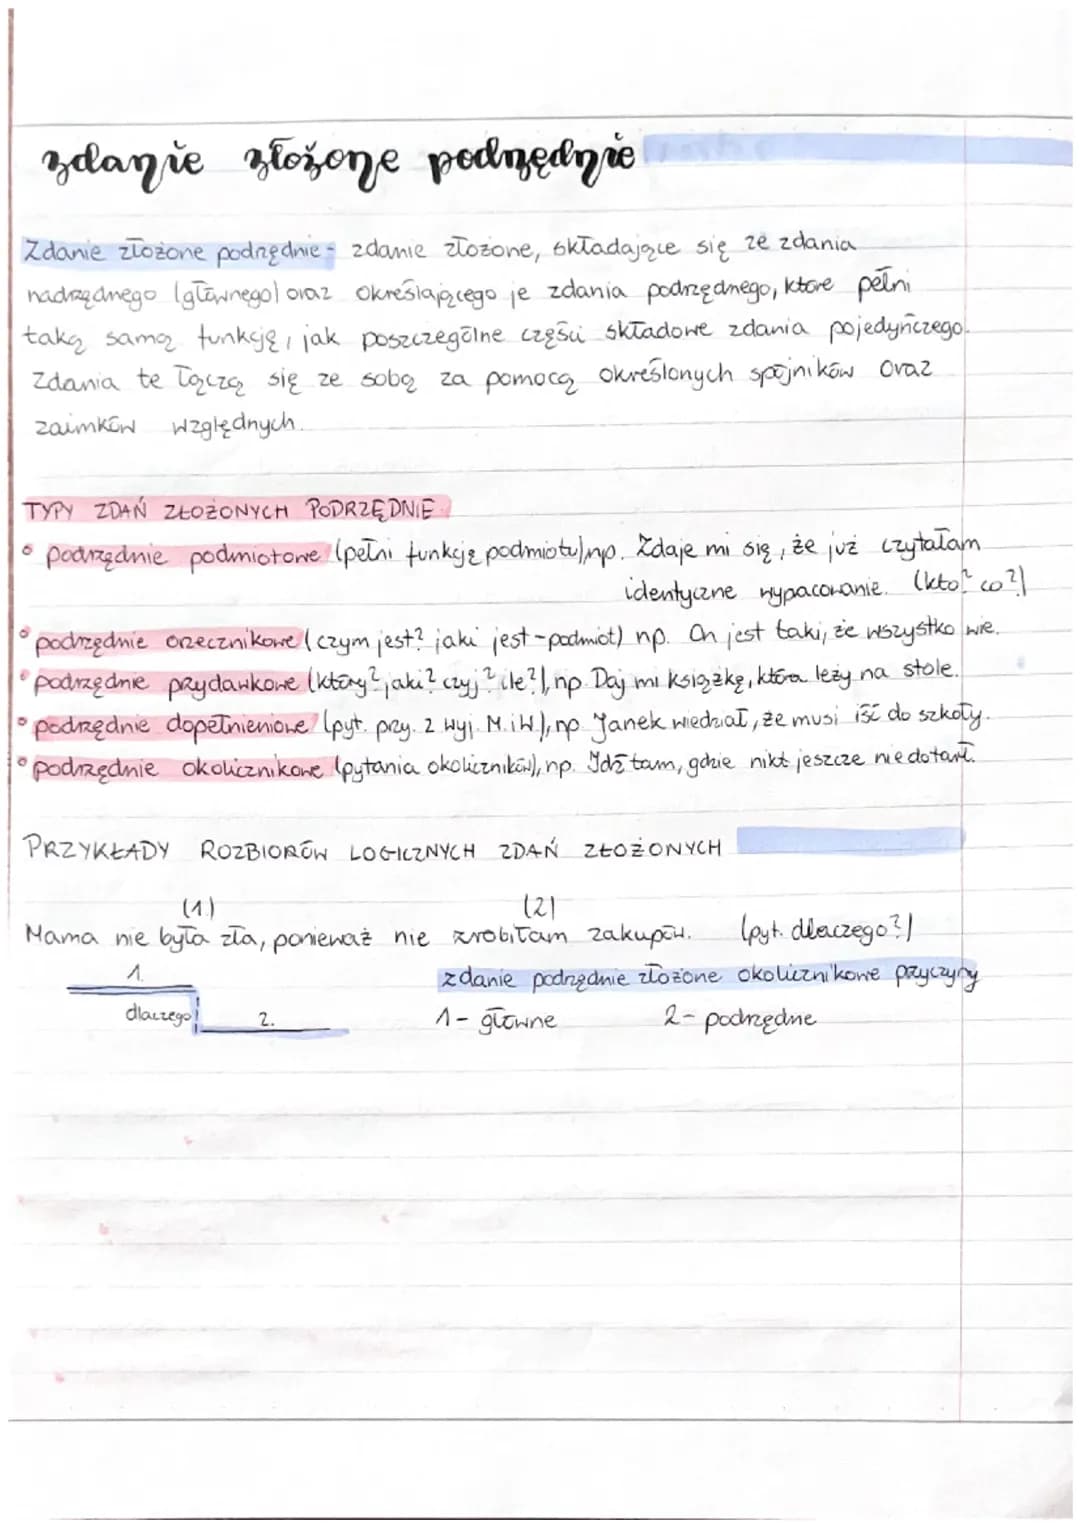 zdanie złożone podrzędnie
Zdanie złożone podrzędnie - zdanie złożone, składające się ze zdania
nadrzędnego (głównego) oraz określającego je zdania podrzędnego, które pełni
taką samą funkcję, jak poszczególne części składowe zdania pojedyńczego.
Zdania te łączą się ze sobą za pomocą określonych spójników oraz
zaimków względnych.
TYPY ZDAŃ ZŁOŻONYCH PODRZĘDNIE
• podrzędnie podmiotowe (pełni funkcję podmiotu), np. Zdaje mi się, że już czytałam
identyczne wypacowanie. (kto? co?)
• podrzędnie orzecznikowe (czym jest? jaki jest - podmiot) np. On jest taki, że wszystko wie.
• podrzędnie przydawkowe (który?, jaki? czyj? ile?), np. Daj mi książkę, która leży na stole.
• podrzędnie dopełnieniowe (pyt. przy. z wyj. M. i W.), np. Janek wiedział, że musi iść do szkoły.
• podrzędnie okolicznikowe (pytania okoliczników), np. Idź tam, gdzie nikt jeszcze nie dotarł.
PRZYKŁADY ROZBIORÓW LOGICZNYCH ZDAŃ ZŁOŻONYCH
(1) (2)
Mama nie była zła, ponieważ nie zrobiłam zakupów. (pyt. dlaczego?)
1. zdanie podrzędnie złożone okolicznikowe przyczyny
dlaczego? 2. 1 - główne 2 - podrzędne